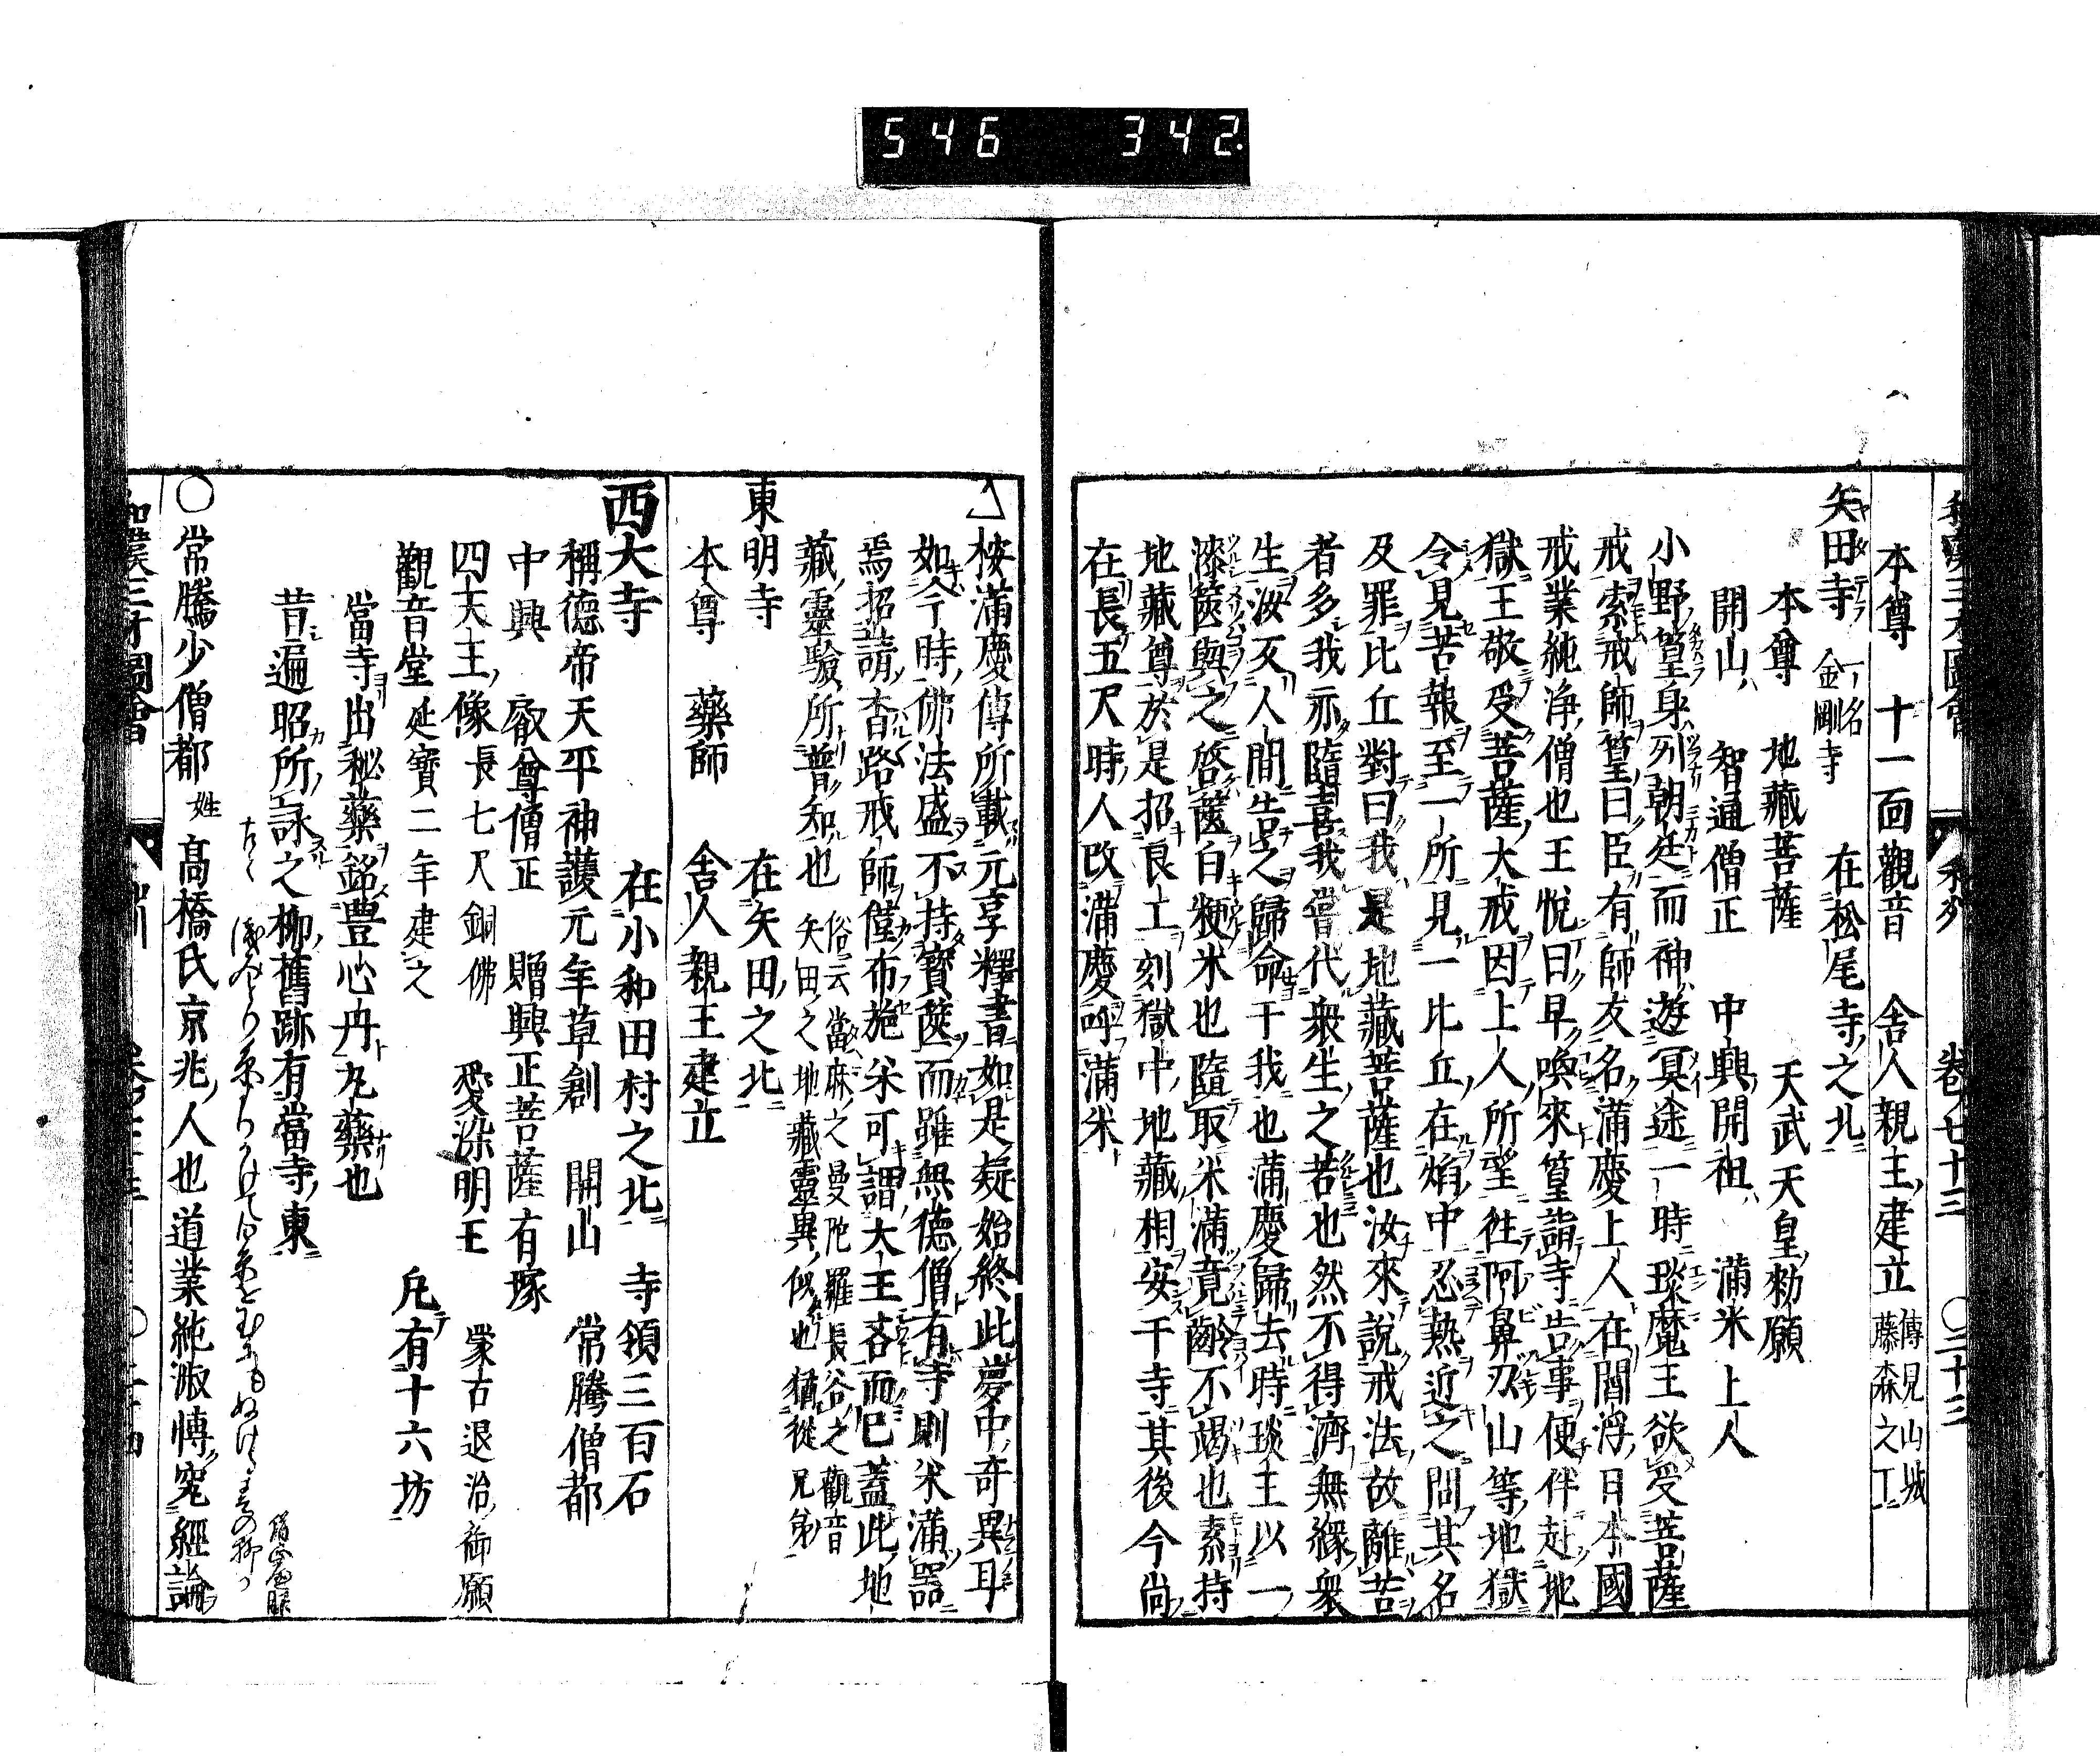 546 342
本尊 十一面觀音 舍人親王建立 傳見山城藤森之丁
矢田寺 一名金剛寺 在松尾寺之北
本尊 地藏菩薩 天武天皇勅願
開山 智通僧正 中興開祖 滿米上人
小野篁身列朝廷而神遊冥途一時琰魔王欲受菩薩
戒索戒師篁曰臣有師友名滿慶上人在閻浮日本國
戒業純淨僧也王悅曰早喚來篁詣寺告事便伴赴地
獄王敬受菩薩大戒因上人所望往阿鼻刃山等地獄
令見苦報至一所見一比丘在焰中忍熱近之問其名
及罪比丘對曰我是地藏菩薩也汝來說戒法故離苦
者多我亦隨喜我嘗代衆生之苦也然不得濟無緣衆
生汝反人間告之歸命于我也滿慶歸去時琰王以一
漆篋與之啓篋白粳米也隨取米滿竟齡不竭也素持
地藏尊於是招良工刻獄中地藏相安于寺其後今尚
在長五尺時人改滿慶呼滿米
△按滿慶傳所載元享釋書如是疑始終此夢中奇異耳
如今時佛法盛不持寶篋而雖無德僧有寺則米滿器
焉招請杳路戒師僅布施米可謂大王吝而已蓋此地
藏靈驗所普知也 俗云當麻之曼陀羅長谷之觀音矢田之地藏靈異似也猶從兄弟
東明寺 在矢田之北
本尊 藥師 舍人親王建立
西大寺 在小和田村之北 寺領三百石
稱德帝天平神護元年草創 開山 常騰僧都
中興 叡尊僧正 贈興正菩薩有塚
四天王像 長七尺銅佛 愛染明王 蒙古退治御願
觀音堂 延寶二年建之 凡有十六坊
當寺出秘藥銘豊心丹丸藥也
昔遍昭所詠之柳舊跡有當寺東
淺みとり糸よりかけて白露を玉にもぬける春の柳か
○常騰少僧都 姓高橋氏京兆人也道業純淑愽究經論